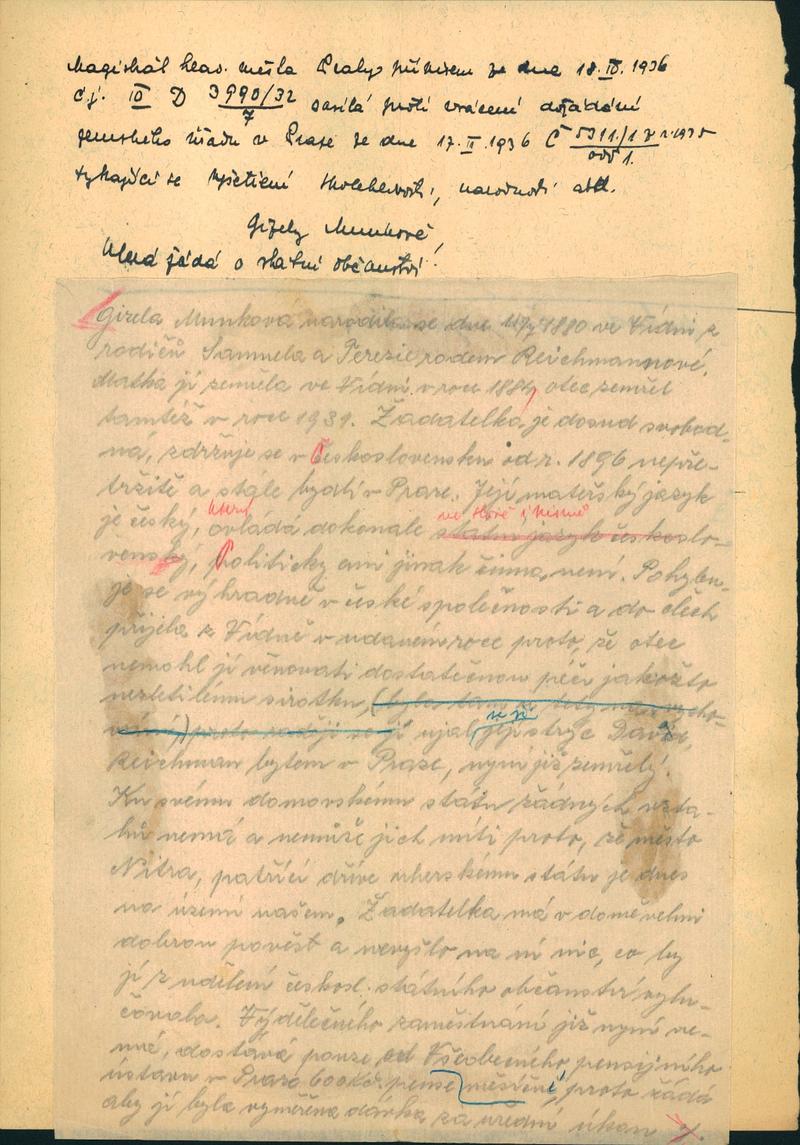 Magistrát hlav. města Prahy přípisem ze dne 18.III.1936
č.j. III D 3990/32 zasílá proti vrácení dožádání
7
zemského úřadu v Praze ze dne 17.II.1936 Č 5311/1
odd 1.
týkající se vyšetření národnosti, atd.
Gizely Munkové
žádá o státní občanství!
Gizela Munkova narodila se dne 1880 ve Vídni z
rodičů Samuela a Terezie rodem Reichmannové.
Matka jí zemřela ve Vídni v roce 1884, otec zemřel
tamtéž v roce 1931. Žadatelka je dosud svobod-
ná, zdržuje se v Československu od r. 1896 nepře-
tržitě a stále bydlí v Praze. Její mateřský jazyk
je český, který ovládá dokonale ve slově i písmě státní jazyk českoslo-
venský, Politicky ani jinak činna není. Pohybu-
je se výhradně v české společnosti a do Čech
přijela z Vídně v udaném roce proto, že otec
nemohl jí věnovati dostatečnou péči jakožto
nezletilému sirotku, (byla tam u tety na vycho-
vání) proto raději se jí ujal její strýc David
Reichman bytem v Praze, nyní již zemřelý.
Ku svému domovskému státu žádných vzta-
hů nemá a nemůže jich míti proto, že město
Nitra, patřící dříve uherskému státu je dnes
na území našem. Žadatelka má v domě velmi
dobrou pověst a nevyšlo na ni nic, co by
jí z udělení českosl. státního občanství vylu-
čovalo. Výdělečného zaměstnaní již nyní ne-
má, dostává pouze od Všeobecného pensijního
ústavu v Praze 600 Kč. pense měsíčně, proto žádá
aby jí byla vyměřena dávka za úřední úkon